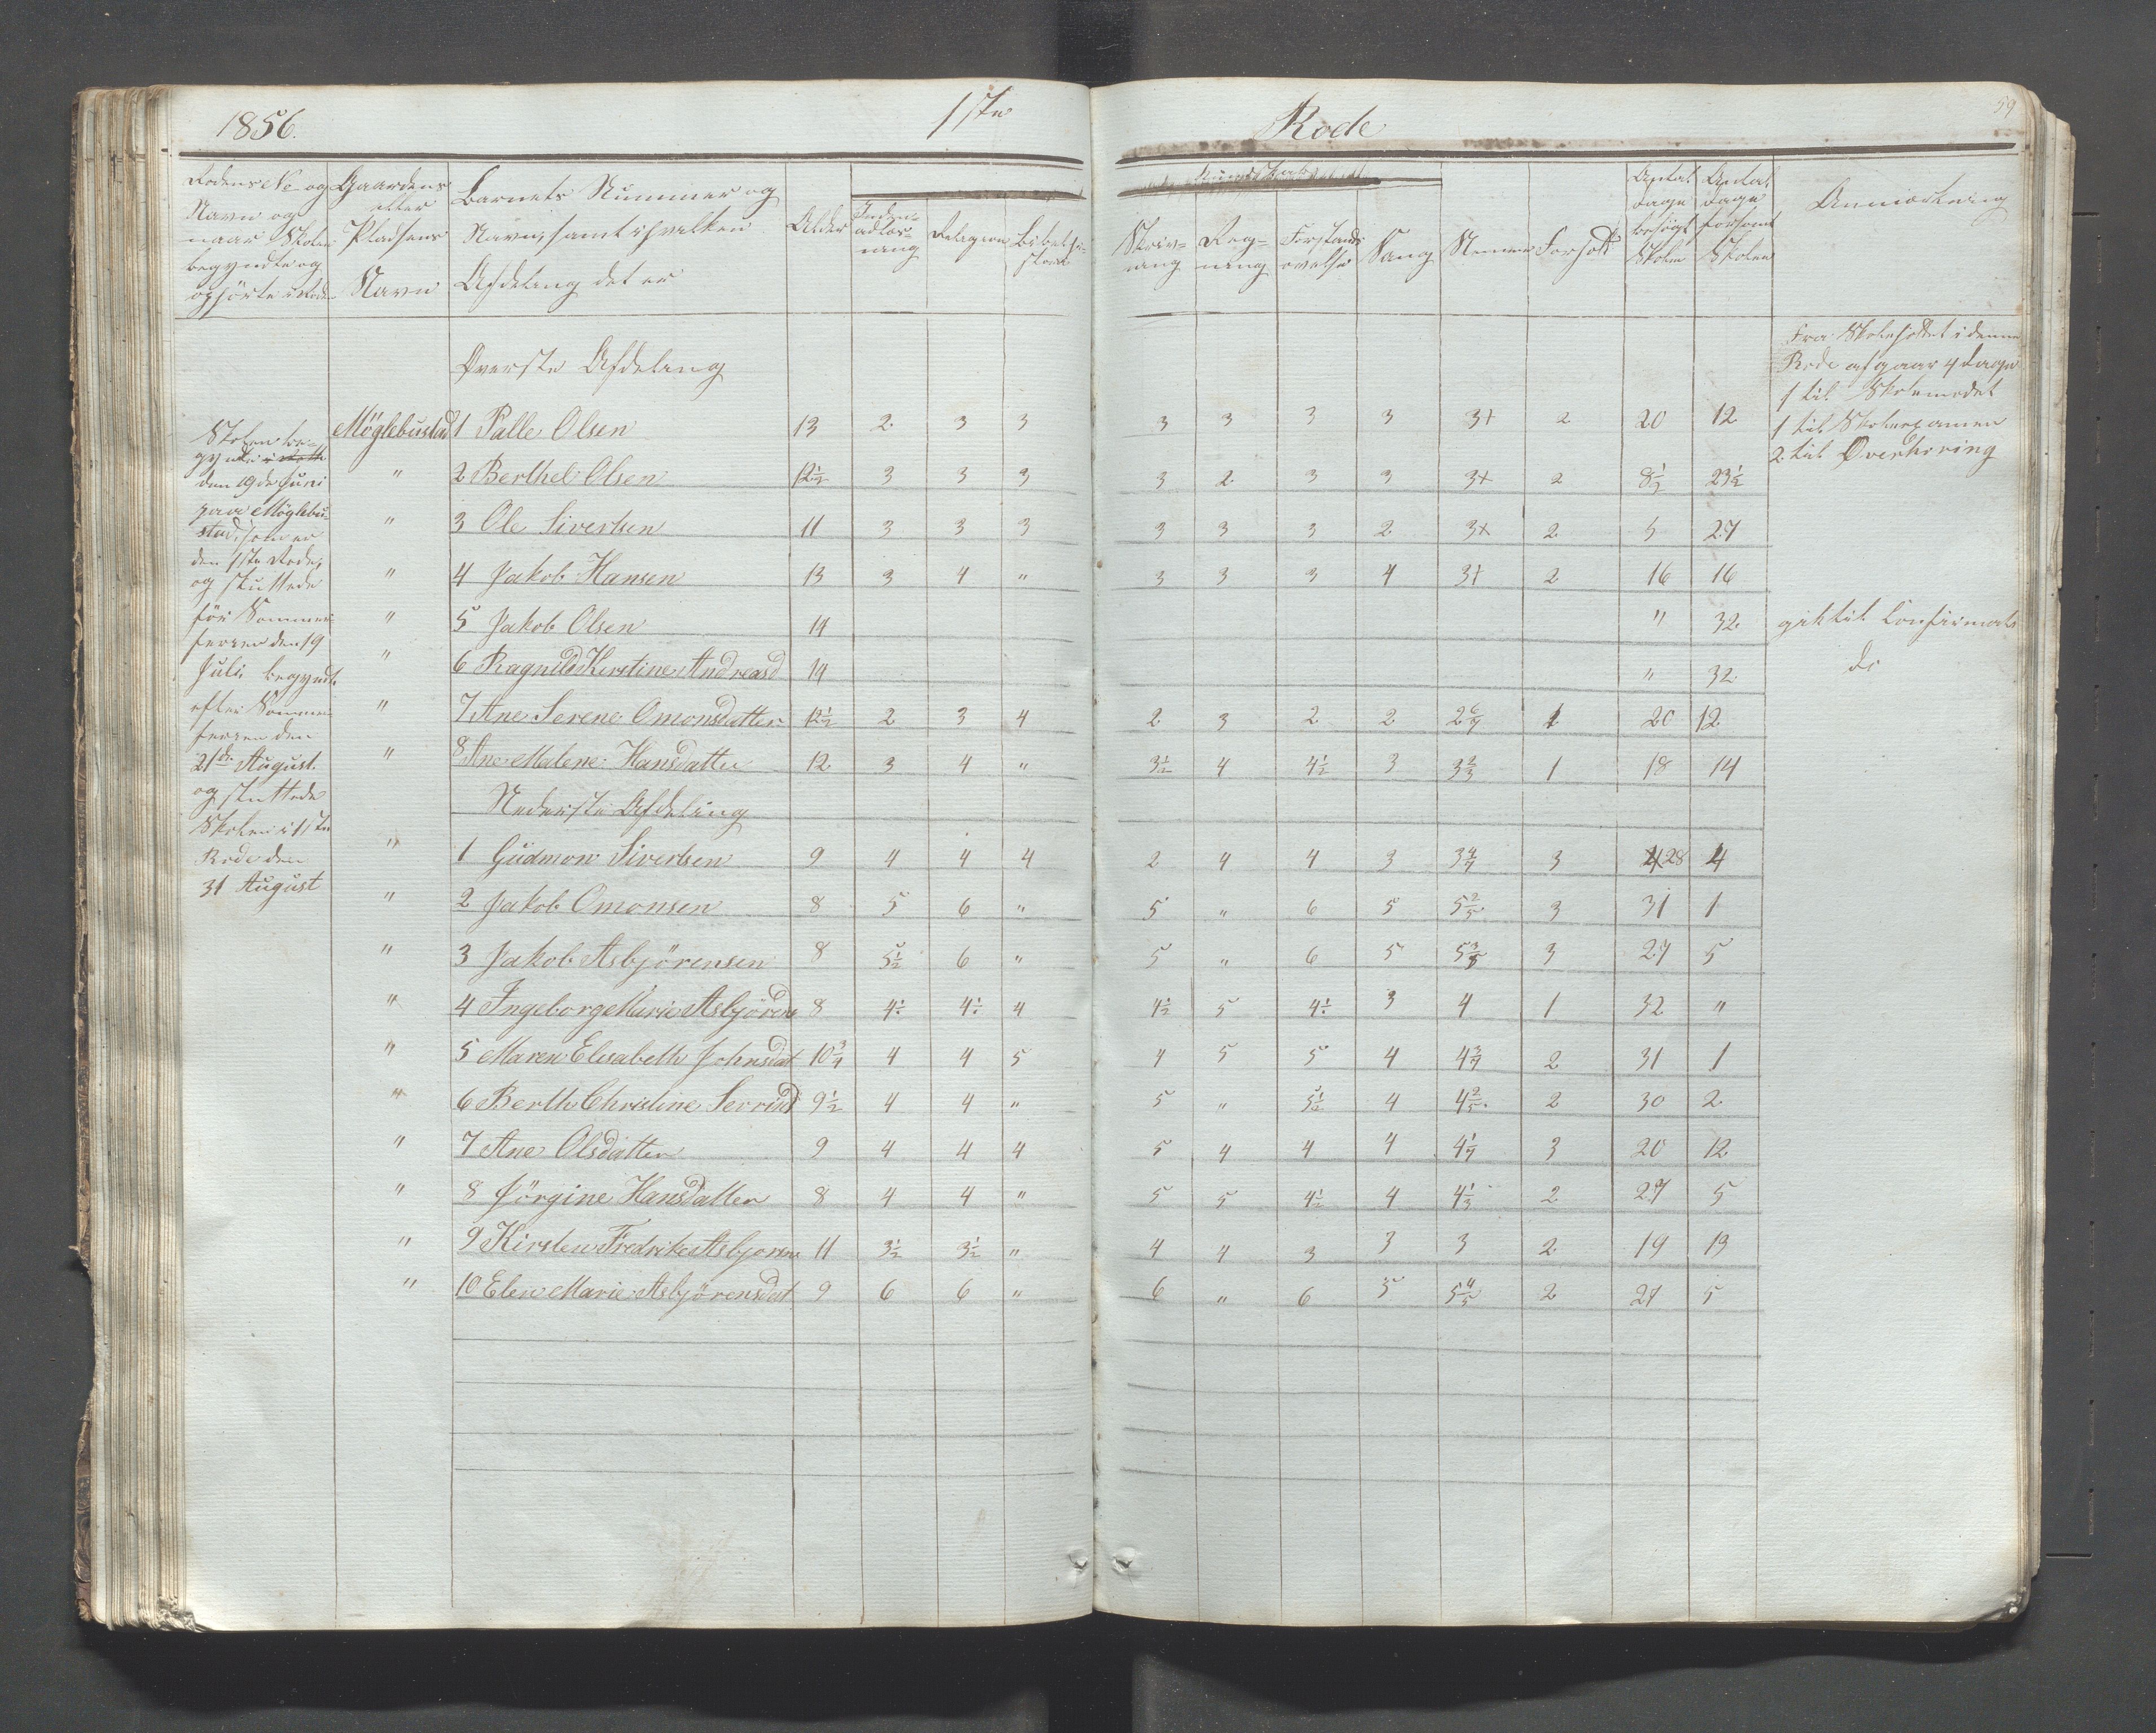 1856. 1ste Rode 59
Rodens No og Navn og naar Skolen begyndte og ophörte i Roden | Gaardens eller Pladsens Navn | Barnets Nummer og Navn, samt i hvilken Afdeling det er | Alder | Inden-adlæs-ning | Religion | Bibelhi-storie | Skriv-ning | Reg-ning | Forstands övelse | Sang | Forhold | Antal Dage besögt Skolen | Antal Dage forsömt Skolen | Anmærkning
Överste Afdeling
Möglebustad 1 Palle Olsen 13 2 3 3 3 3 3 3 3+ 2 20 12
" 2 Berthel Olsen 12½ 3 3 3 3 2 3 3 3+ 2 8½ 23½
" 3 Ole Sivertsen 11 3 3 3 3 3 3 2 3+ 2 5 27
" 4 Jakob Hansen 13 3 4 " 3 3 3 4 3+ 2 16 16
" 5 Jakob Olsen 14 " 32 gik til Confirmats
" 6 Ragnild Kirstine Andreasd 14 " 32 do
" 7 Ane Serene Omonsdatter 12½ 2 3 4 2 3 2 2 2 6/7 1 20 12
" 8 Ane Malene Hansdatter 12 3 4 " 3½ 4 4½ 3 3⅔ 1 18 14
Nederste Afdeling
" 1 Gudmon Sivertsen 9 4 4 4 2 4 4 3 3 4/7 3 28 4
" 2 Jakob Omonsen 8 5 6 " 5 " 6 5 5 2/5 3 31 1
" 3 Jakob Asbjörensen 8 5½ 6 " 5 " 6 5 5 3/5 3 27 5
" 4 Ingeborg Marie Asbjörens 8 4½ 4½ 4 4½ 5 4½ 3 4 1 32 "
" 5 Maren Elisabeth Johnsdat 10¾ 4 4 5 4 5 5 4 4 3/7 2 31 1
" 6 Berthe Christine Serrisd 9½ 4 4 " 5 " 5½ 4 4 2/5 2 30 2
" 7 Ane Olsdatter 9 4 4 4 5 4 4 4 4 1/7 3 20 12
" 8 Jörgine Hansdatter 8 4 4 " 5 5 4½ 4 4⅓ 2 27 5
" 9 Kirsten Fredrike Asbjörens 11 3½ 3½ " 4 4 3 3 3 2 19 13
" 10 Elen Marie Asbjörensdat 9 6 6 " 6 " 6 5 5 4/5 2 27 5
Skolen be-
gyndte
den 19de Juni
paa Möglebu-
stad, som er
den 1ste Rode,
og sluttede
för Sommer-
ferien den 19
Juli, begyndte
efter Sommer-
ferien den
21de August
og sluttede
Skolen i 1ste
Rode den
31 August
Fra Skoleholdet i denne
Rode afgaar 4 Dage
1 til Skolemödet
1 til Skoleexamen
2 til Överhöring